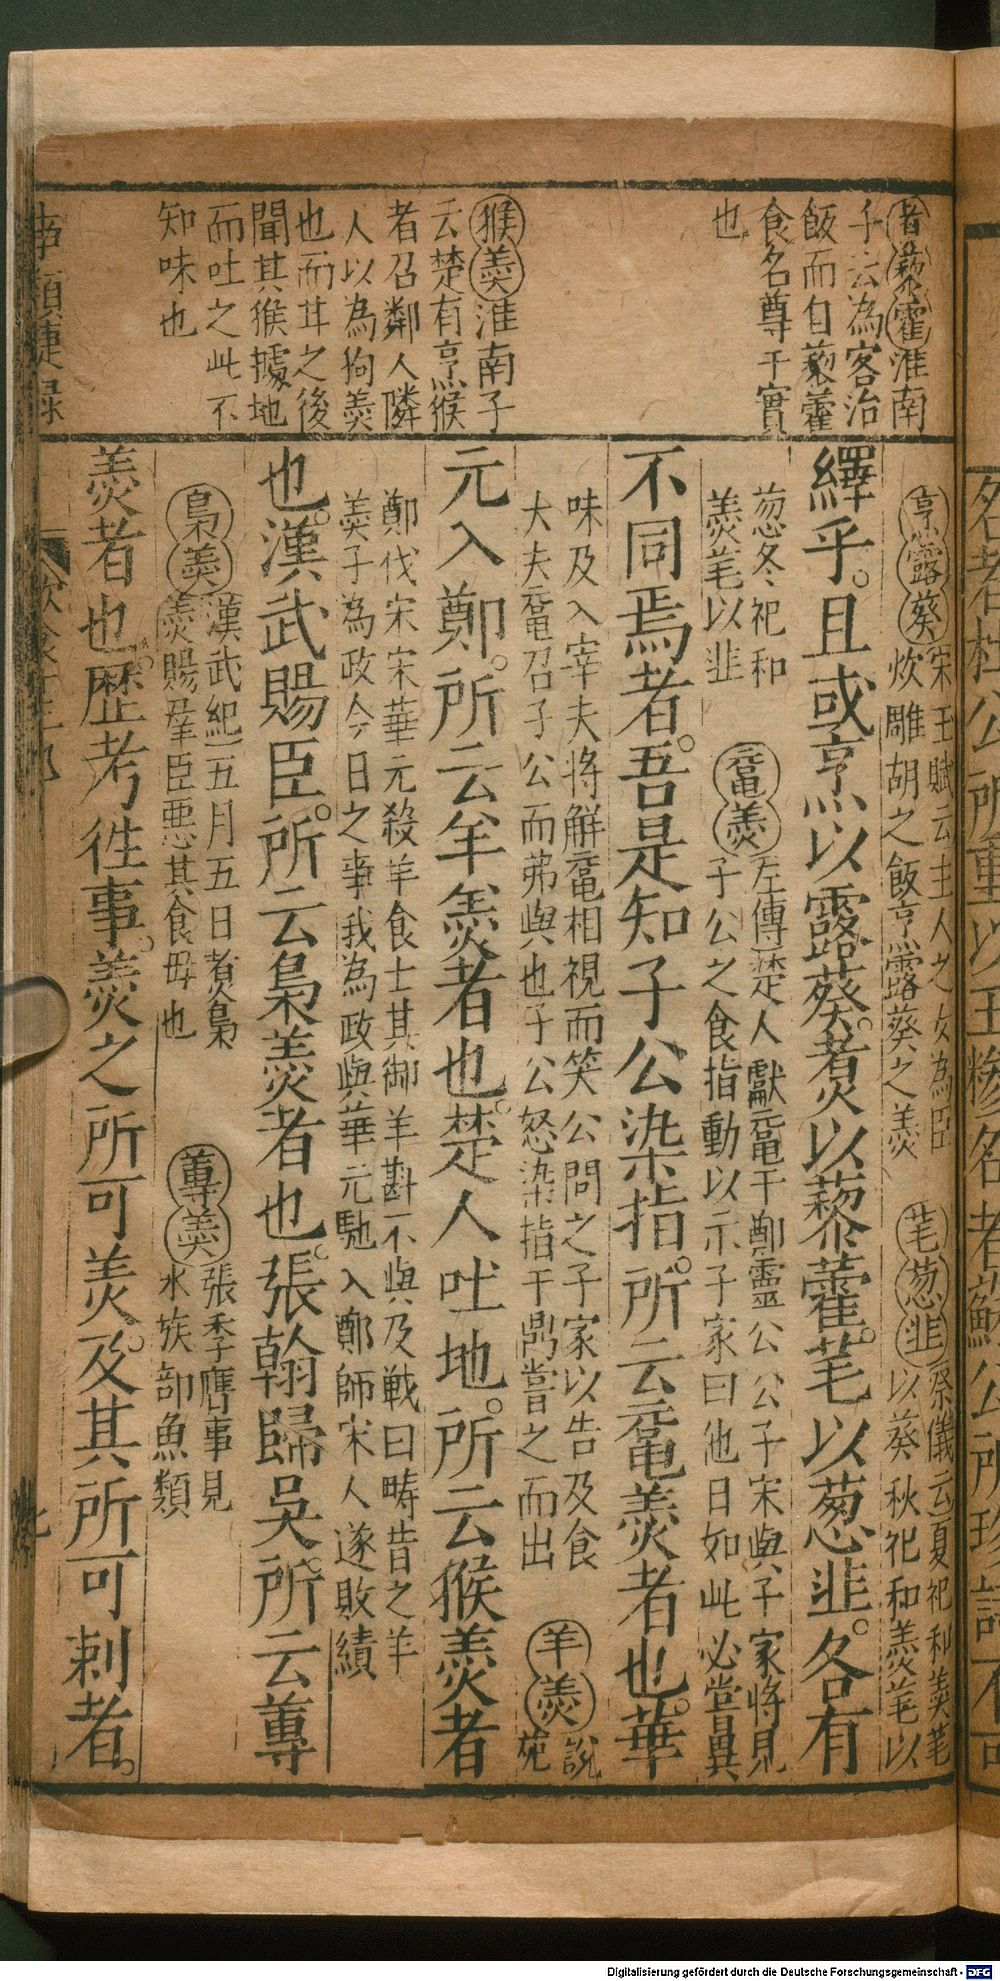 煑藜霍淮南
子云為客治
飯而自藜藿
食名尊于實
也
猴羹淮南子
云楚有烹猴
者召鄰人隣
人以為狗羹
也而甘之後
聞其猴據地
而吐之此不
知味也
烹露葵宋玉賦云主人之女為臣
炊雕胡之飯烹露葵之羹
芼葱韭祭儀云夏祀和羹芼
以葵秋祀和羹芼以
繹乎。且或烹以露葵。煑以藜藿。芼以葱韭。各有
葱冬祀和
羹芼以韭
黿羹左傳楚人獻黿于鄭靈公公子宋與子家將見
子公之食指動以示子家曰他日如此必嘗異
不同焉者。吾是知子公染指。所云黿羹者也。華
味及入宰夫將解黿相視而笑公問之子家以告及食
大夫黿召子公而弗與也子公怒染指于鼎嘗之而出
羊羹說
苑
元入鄭。所云羊羹者也。楚人吐地。所云猴羹者
鄭伐宋宋華元殺羊食士其御羊斟不與及戰曰疇昔之羊
羹子為政今日之事我為政與華元馳入鄭師宋人遂敗績
也。漢武賜臣。所云梟羹者也。張翰歸吳。所云蓴
梟羹漢武紀五月五日煑梟
羹賜羣臣惡其食毋也
蓴羹張季鷹事見
水族部魚類
羹者也。歷考徃事。羹之所可羡。及其所可剌者。
事類捷録
飲食
名者杜公所重以玉糝名者蘇公所珍